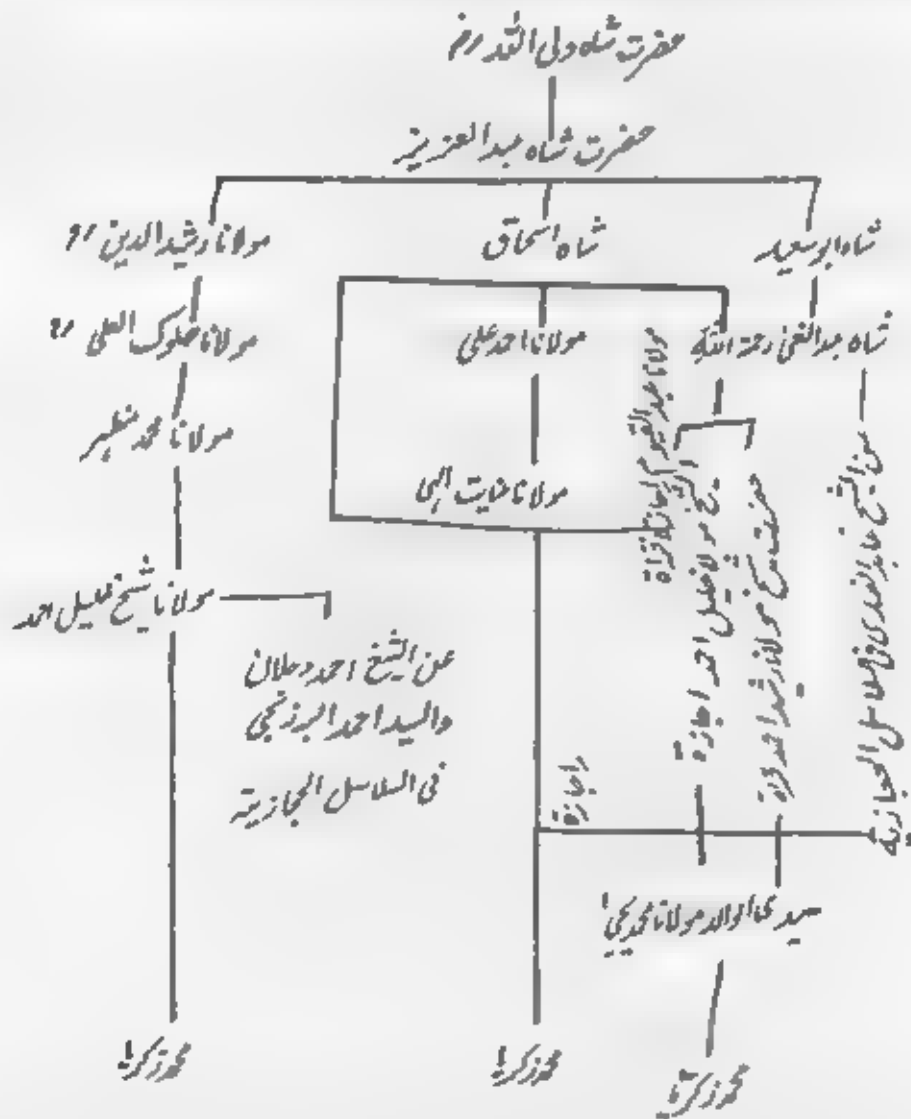 حضرت شاہ ولی اللہ رح
حضرت شاہ عبدالعزیز
شاہ ابوسعید
شاہ اسحاق
مولانا رشیدالدین رح
شاہ عبدالغنی رحمۃ اللہ
مولانا احمد علی
مولانا مملوک العلی رح
مولانا محمد مظہر
مولانا عنایت الٰہی
مولانا عبدالقیوم
اجازۃ قراۃ
مولانا خلیل احمد اجازۃ
حضرت گنگوہی مولانا رشید احمد قراۃ
عن الشیخ عابد السندی فی سلاسل الحجازیۃ
مولانا شیخ خلیل احمد
عن الشیخ احمد دحلان
والسید احمد البرزنجی
فی السلاسل الحجازیۃ
اجازۃ
سیدی الوالد مولانا محمد یحیٰی
محمد زکریا
محمد زکریا
محمد زکریا